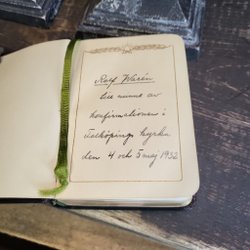 Rolf Warén
till minne av
konfirmationen i
Falköpings kyrka
den 4 och 5 maj 1952